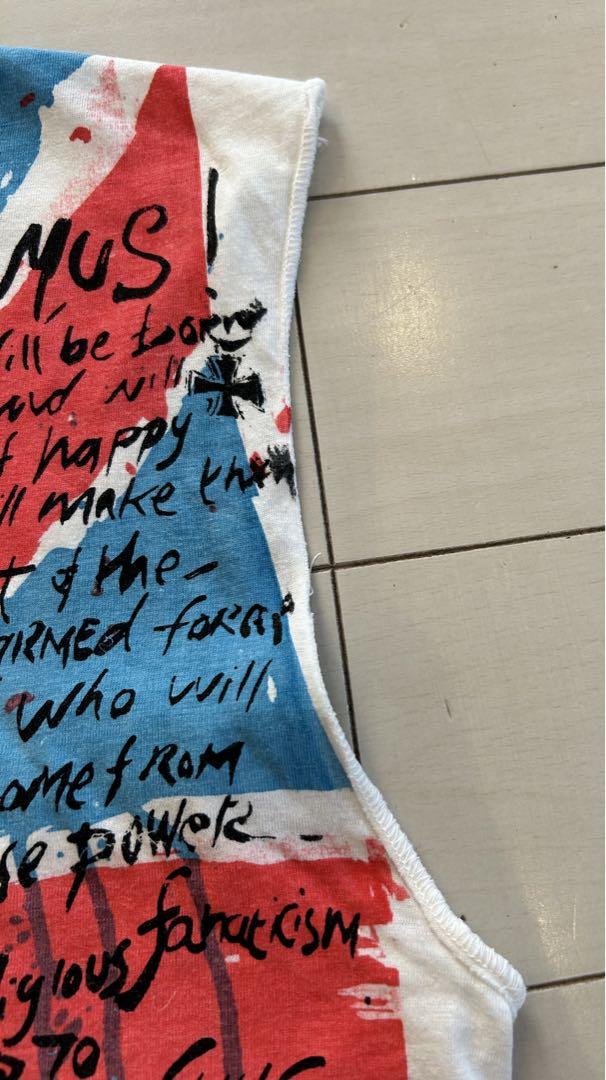 MUS!
ill be
and will
happy
ll make them
t of the-
ARMED forces
who will
ome from
se powers
igious fanaticism